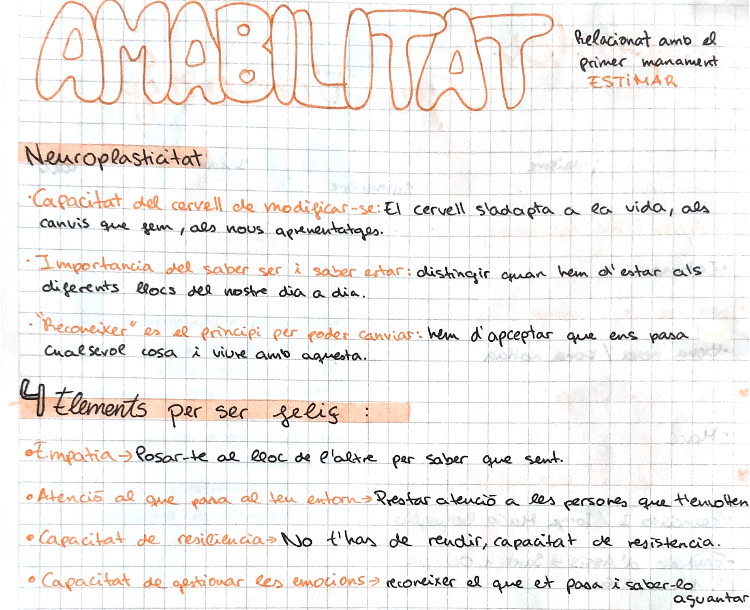 AMABILITAT
Relacionat amb el
primer manament
ESTIMAR
Neuroplasticitat
·Capacitat del cervell de modificar-se: El cervell s'adapta a la vida, als
canvis que fem, als nous aprenentatges.
·Importancia del saber ser i saber estar: distingir quan hem d'estar als
diferents llocs del nostre dia a dia.
·"Reconeixer" es el principi per poder canviar: hem d'apceptar que ens pasa
cualsevol cosa i viure amb aquesta.
4 Elements per ser feliç :
•Empatia→Posar-te al lloc de l'altre per saber que sent.
•Atenció al que pasa al teu entorn→Prestar atenció a les persones que t'envolten
•Capacitat de resiliencia→No t'has de rendir, capacitat de resistencia.
•Capacitat de gestionar les emocions→reconeixer el que et pasa i saber-lo
aguantar